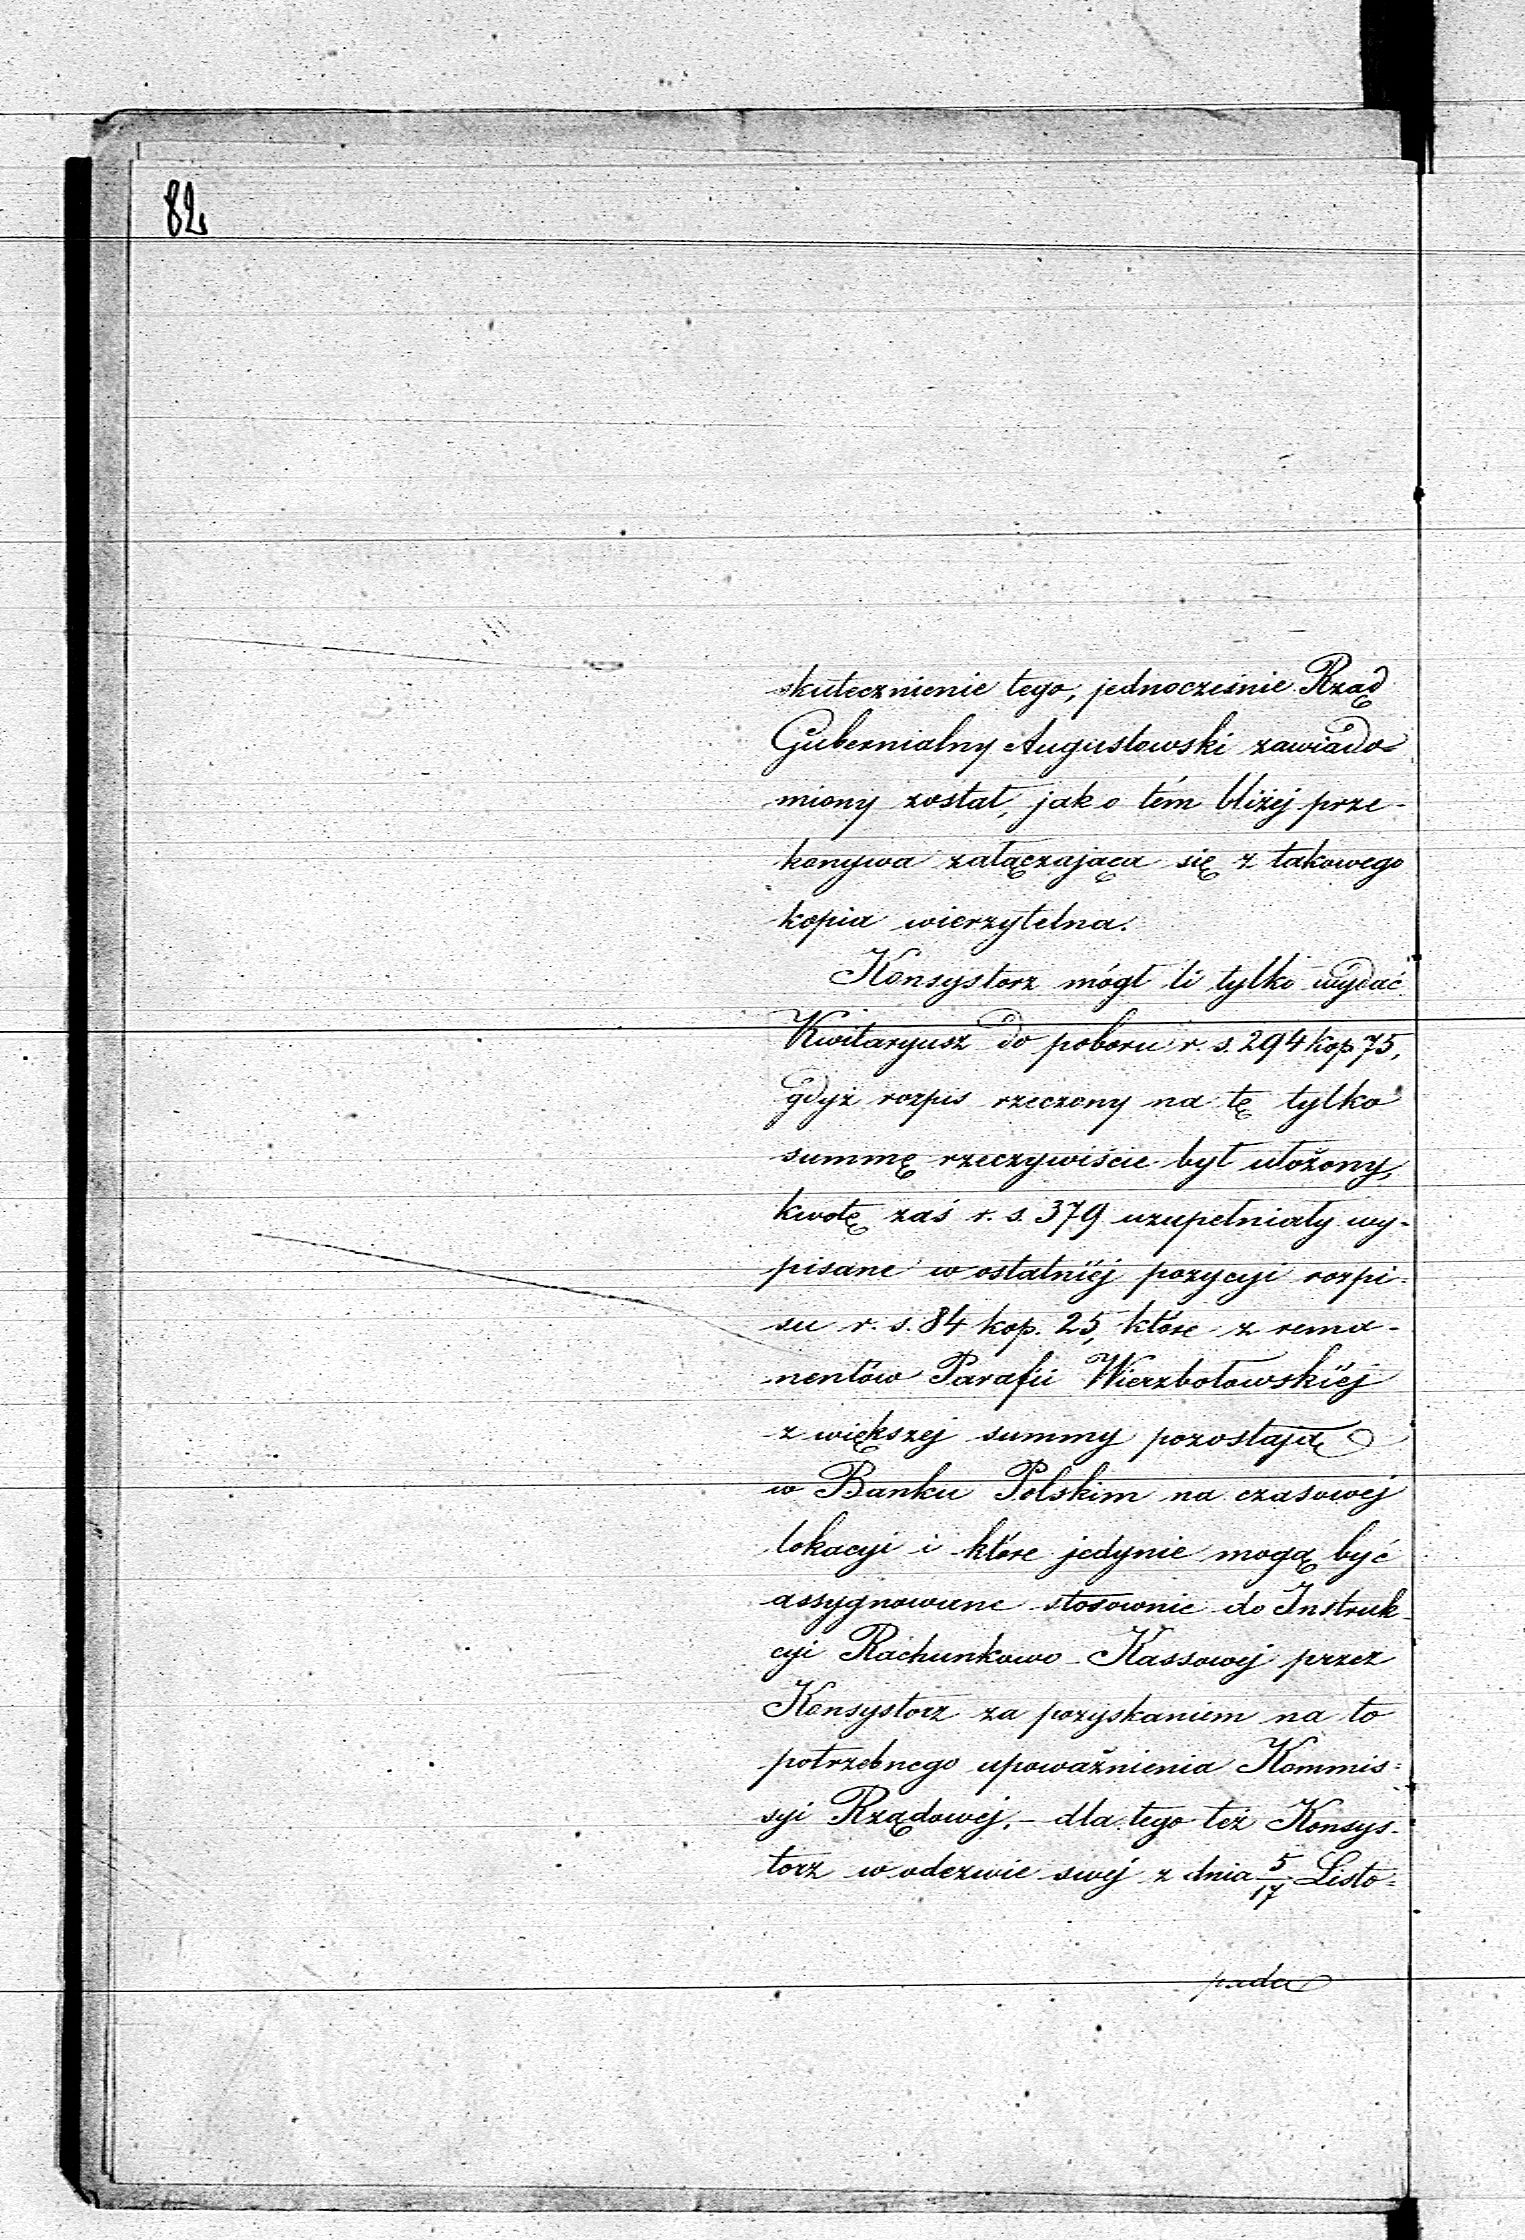 82
skutecznienie tego, jednocześnie Rząd
Gubernialny Augustowski zawiado=
miony został, jak o tém bliżéj prze-
konywa załączająca się z takowego
kopia wierzytelna.
Konsystorz mógł li tylko wydać
Kwitaryusz do poboru r. s. 294 kop 75,
gdyż rozpis rzeczony na tę tylko
summę rzeczywiście był ułożony,
kwotę zaś r. s. 379 uzupełniały wy-
pisane w ostatniéj pozycyi rozpi-
su r. s. 84 kop. 25, które z rema-
nentów Parafii Wierzbołowskiéj
z większej summy pozostają
w Banku Polskim na czasowéj
lokacyi i które jedynie mogą być
assygnowane stosownie do Instruk-
cyi Rachunkowo-Kassowéj przez
Konsystorz za pozyskaniem na to
potrzebnego upoważnienia Kommis=
syi Rządowéj, - dla tego też Konsys-
torz w odezwie swéj z dnia 5/17 Listo=
pada